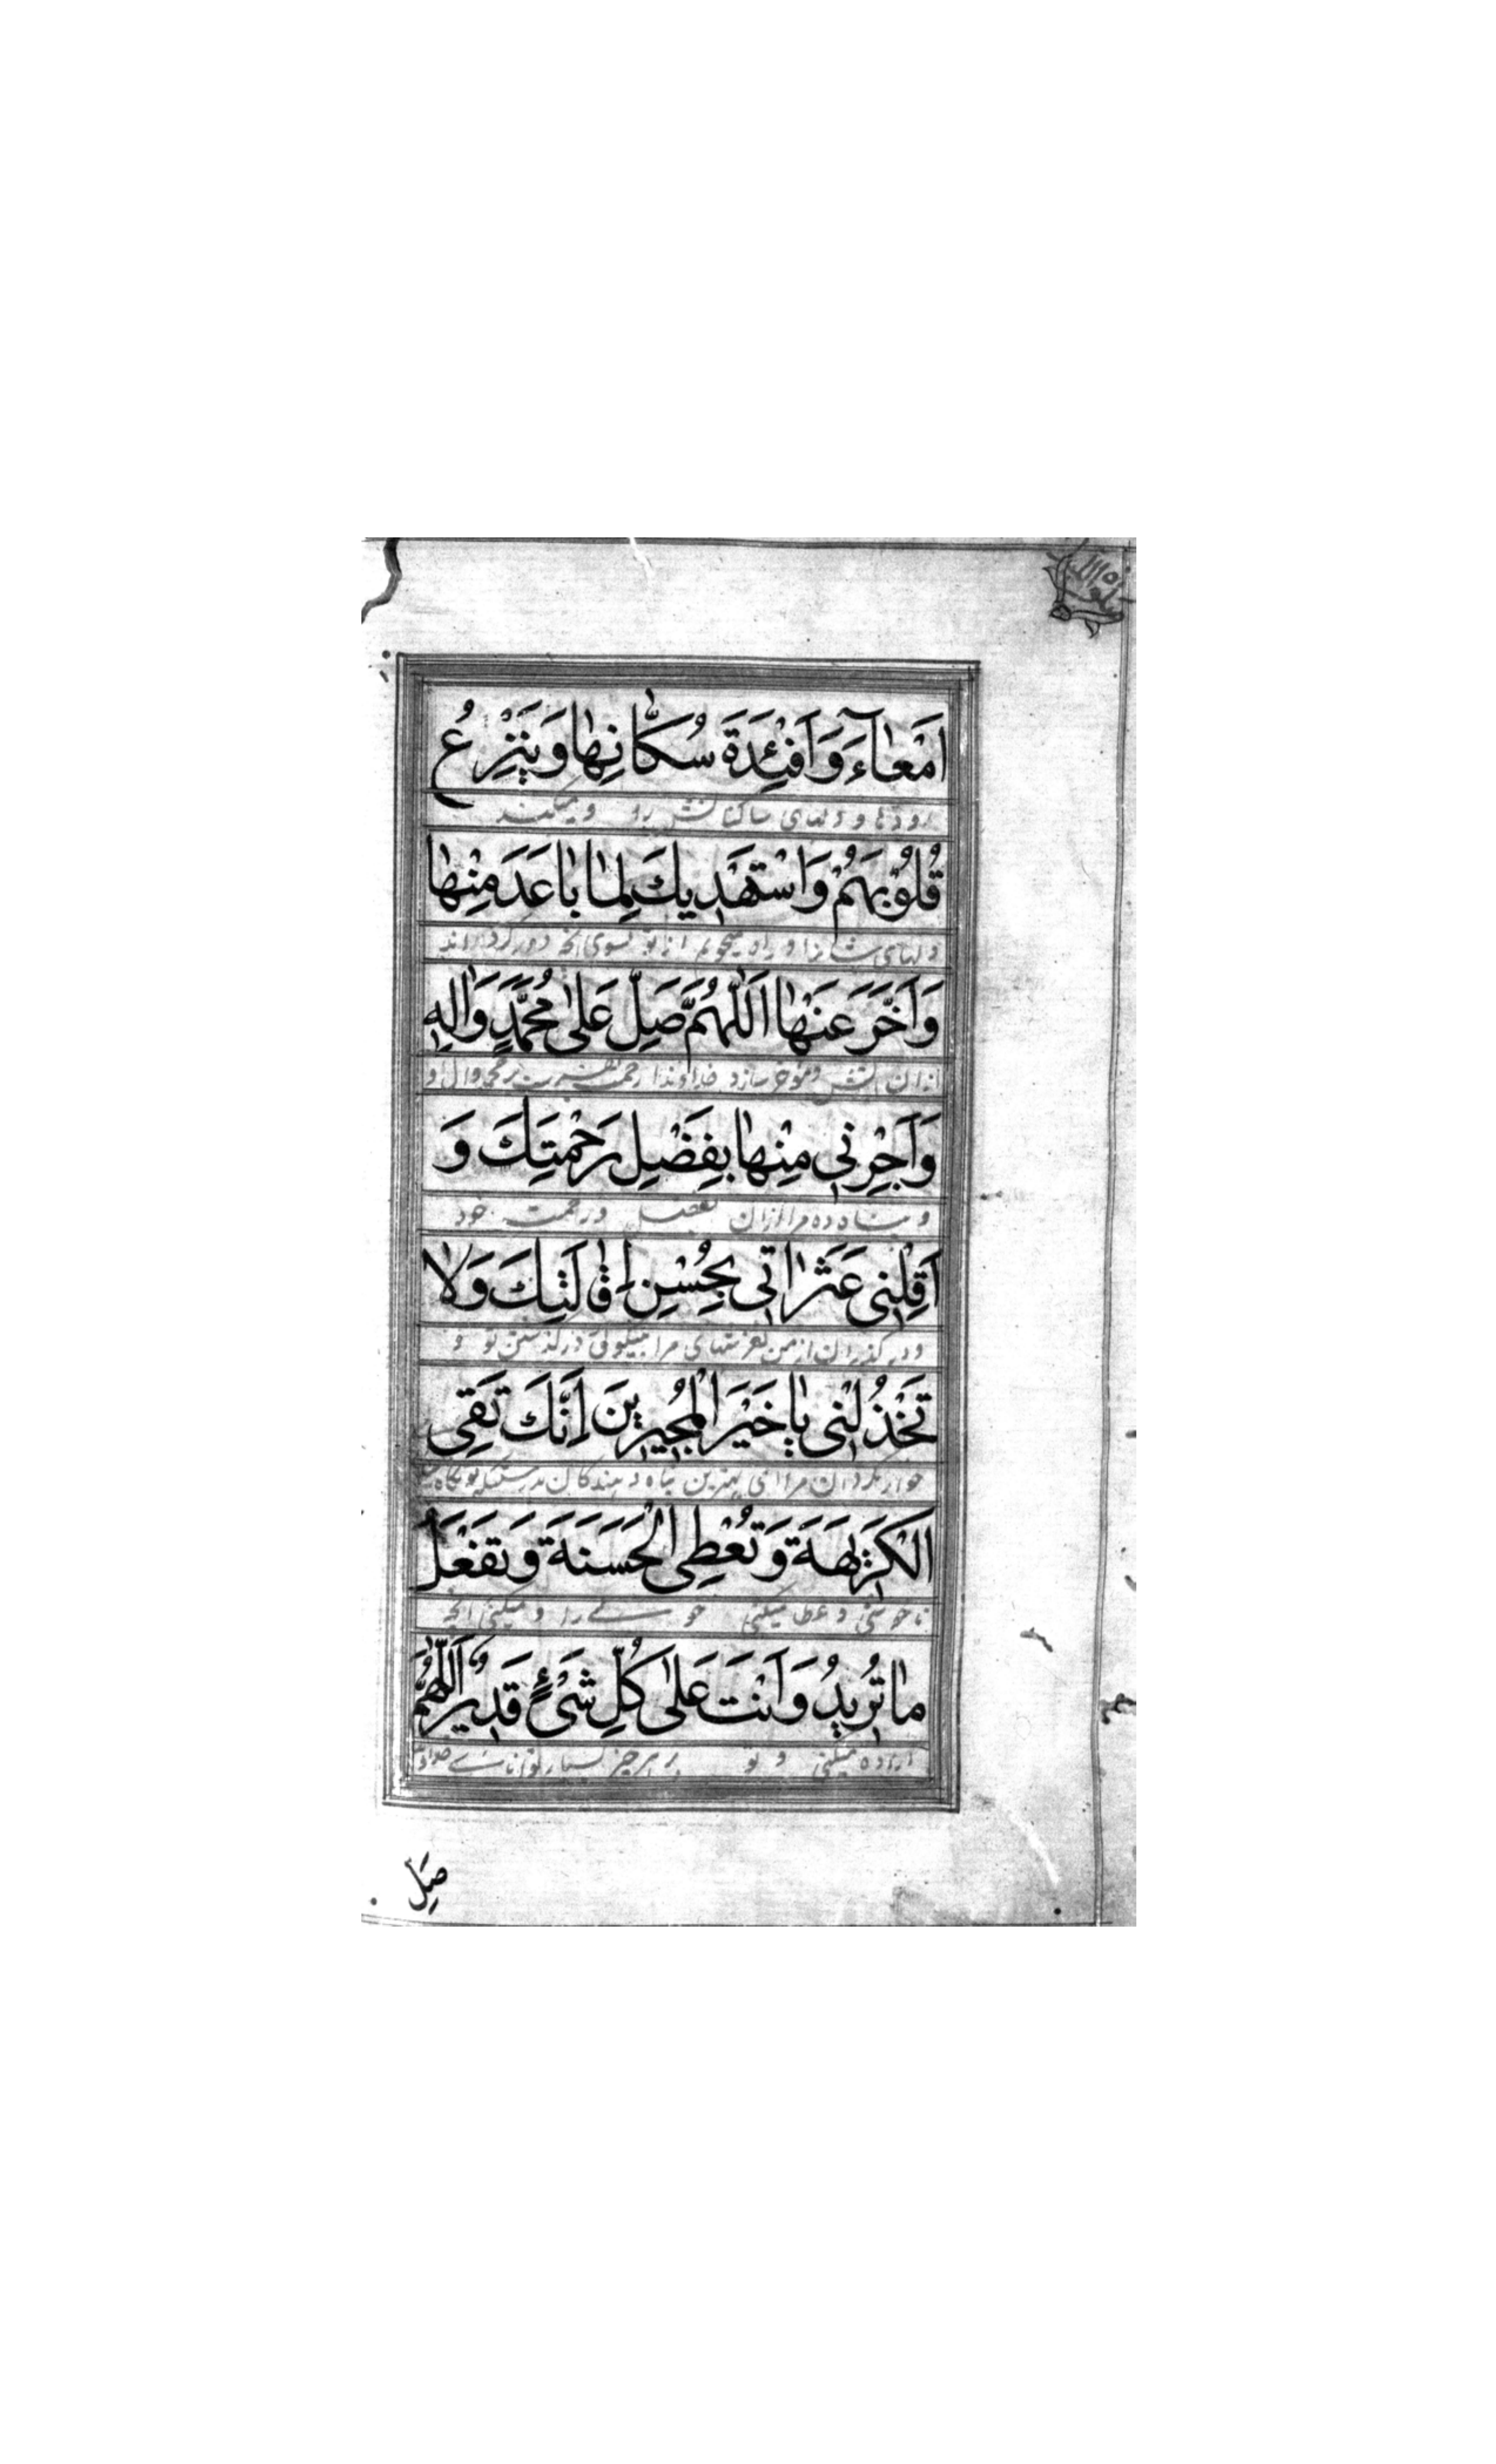 اَمْعٰآءَ وَ اَفْئِدَةَ سُكّٰانِهٰا وَ يَنْزِعُ
رودها و دلهای ساکنانش را و میکند
قُلُوْبَهُمْ وَ اسْتَهْدِيكَ لِمٰا بٰاعَدَ مِنْهٰا
دلهای ایشانرا و راه میجویم از تو بسوی آنچه دور گرداند
وَ اَخَّرَ عَنْهٰا اَللّٰهُمَّ صَلِّ عَلٰى مُحَمَّدٍ وَ اٰلِهِ
ازان و مؤخر سازد خداوندا رحمت بفرست بر محمد و ال او
وَ اَجِرْنِي مِنْهٰا بِفَضْلِ رَحْمَتِكَ وَ
و پناه ده مرا ازان بفضل و رحمت خود
اَقِلْنِي عَثَرٰاتِي بِحُسْنِ اِقٰالَتِكَ وَ لٰا
و در گذران از من لغزشهای مرا بنیکوئی درگذشتن تو و
تَخْذُلْنِي يٰا خَيْرَ الْمُجِيرِينَ اِنَّكَ تَقِي
خوار مگردان مرا ای بهترین پناه دهندکان بدرستیکه تو نگاه
الْكَرِيهَةَ وَ تُعْطِي الْحَسَنَةَ وَ تَفْعَلُ
ناخوشی و عطا میکنی را و میکنی آنچه
مٰا تُرِيدُ وَ اَنْتَ عَلٰى كُلِّ شَيْءٍ قَدِيرٌ اَللّٰهُمَّ
اراده میکنی و تو بر هر چیز بسیار توانائی
صَلِّ